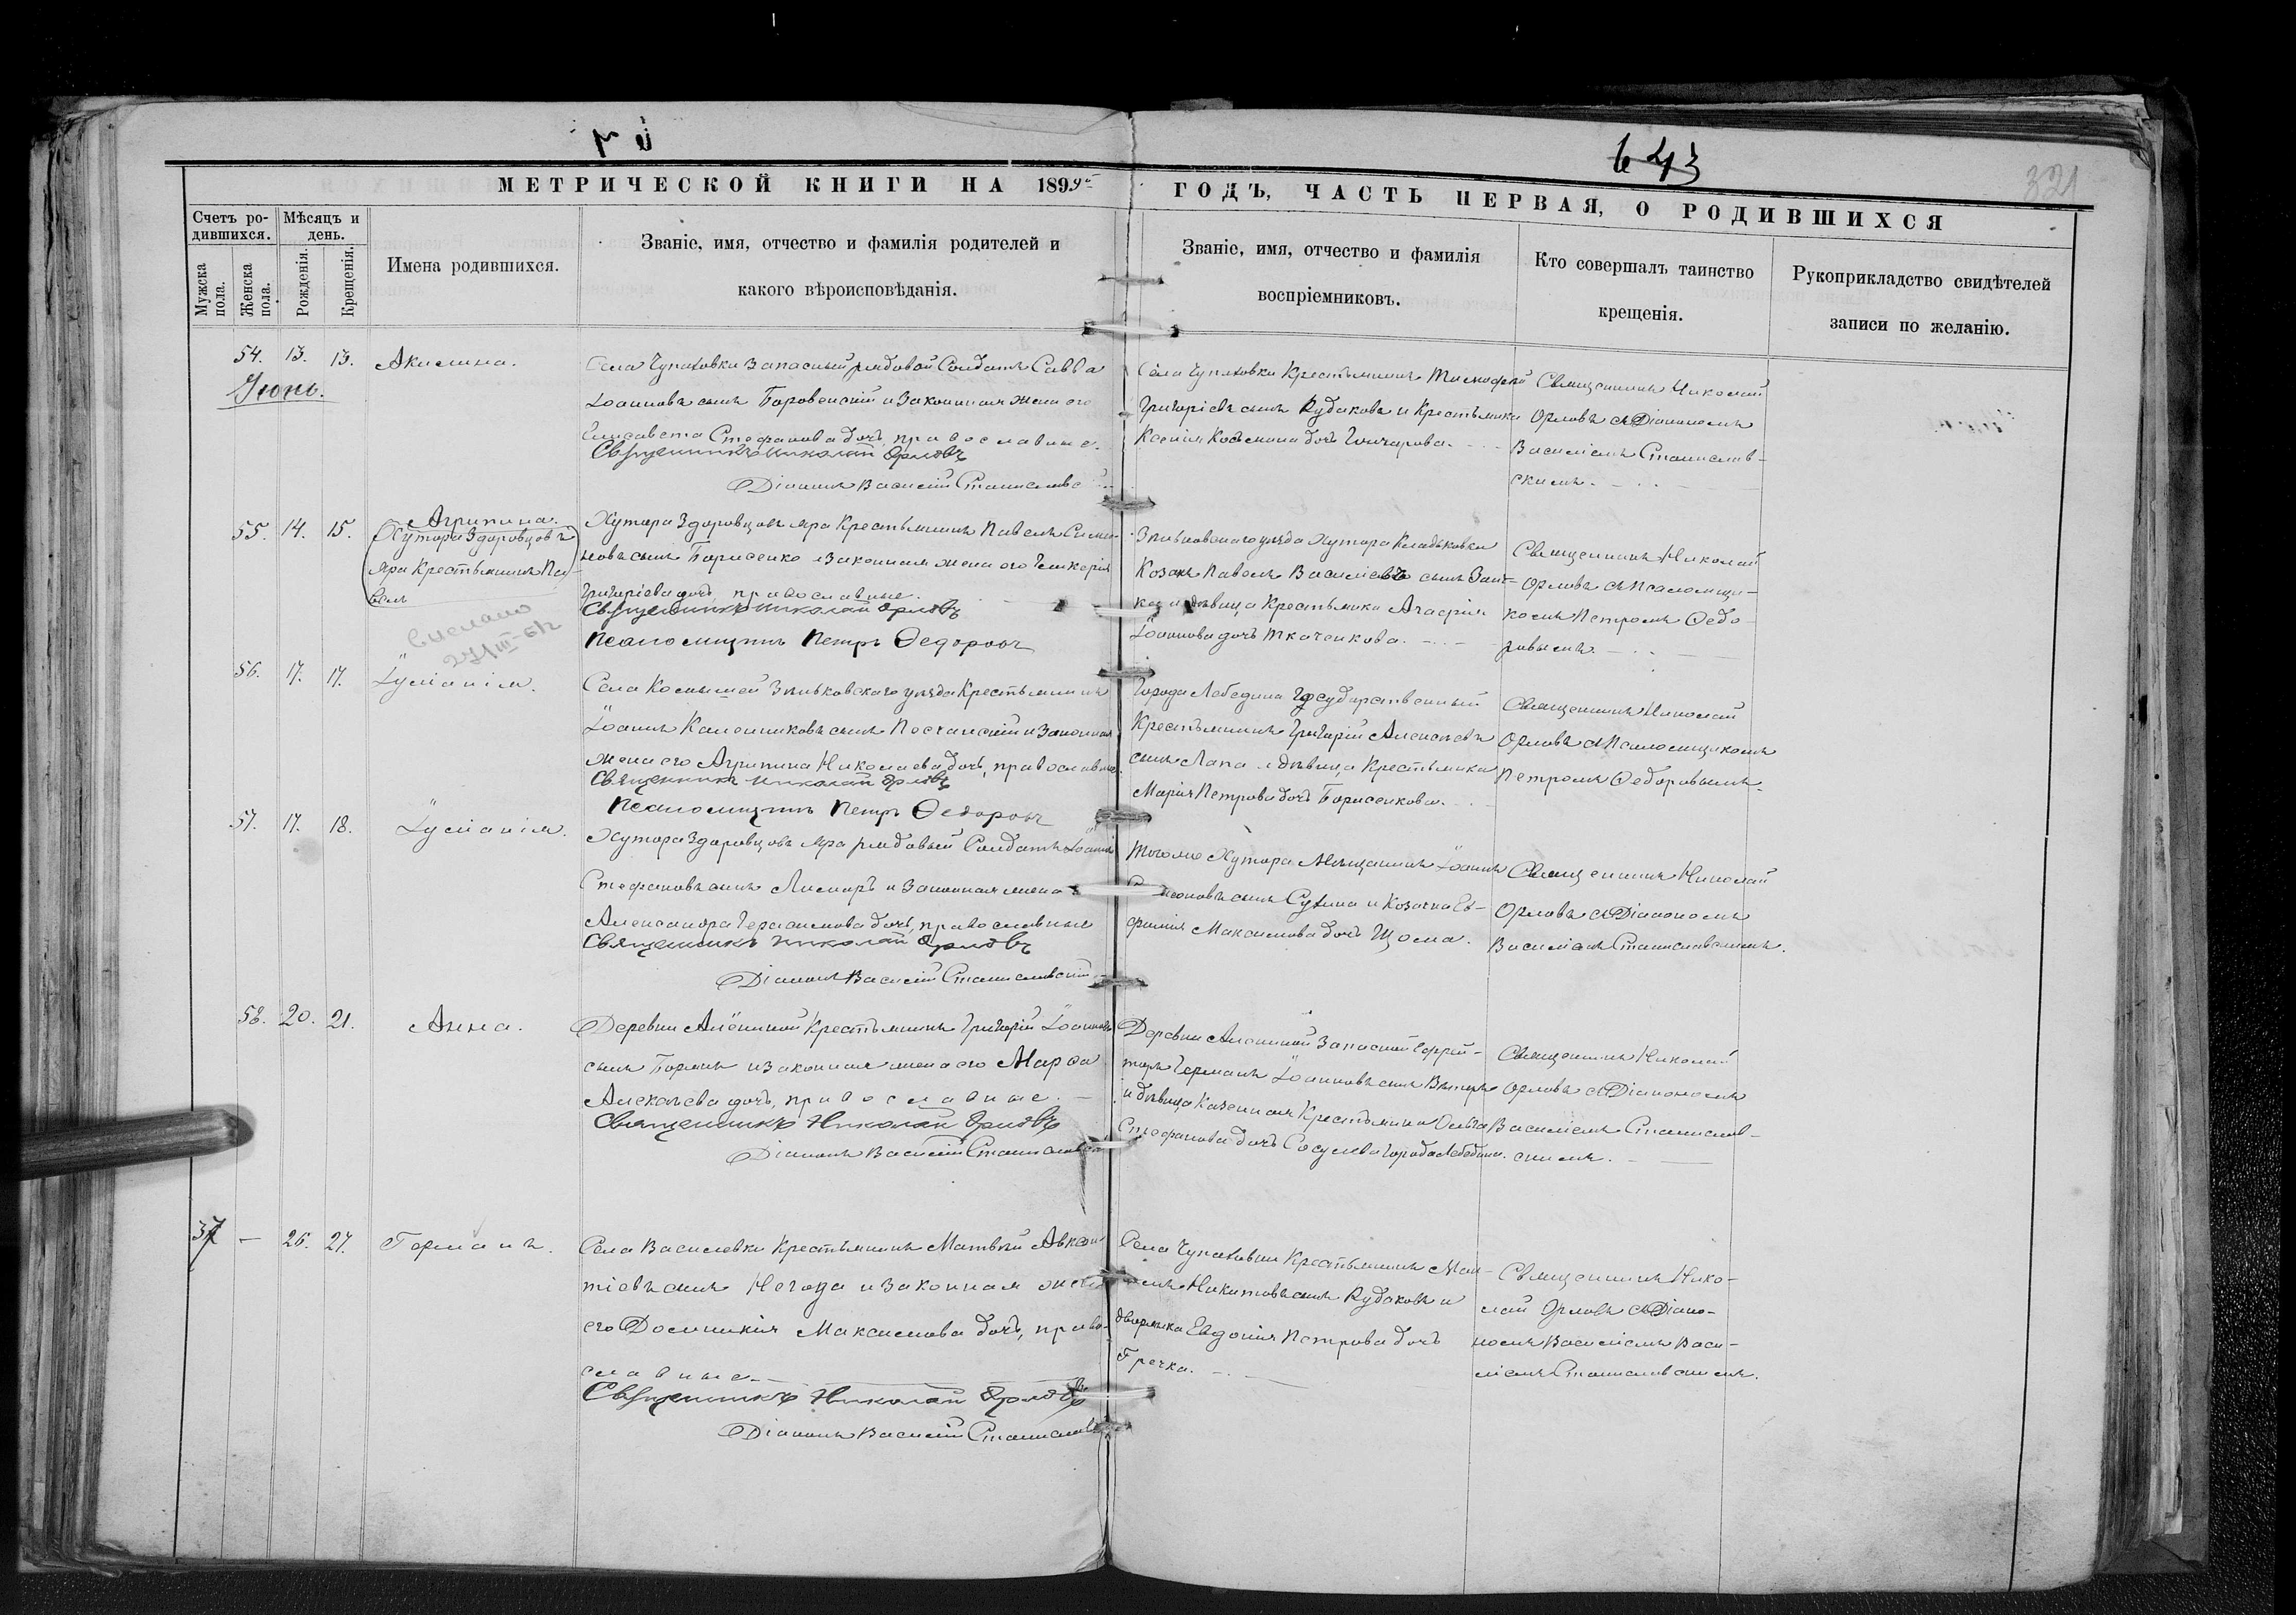 643
321
МЕТРИЧЕСКОЙ КНИГИ НА 1899й
ГОДЪ, ЧАСТЬ ПЕРВАЯ, О РОДИВШИХСЯ
Счетъ ро-
дившихся.
Мужска
пола.
Женска
пола.
Мѣсяцъ и
день.
Рожденія.
Крещенія.
Имена родившихся.
Званіе, имя, отчество и фамилія родителей и
какого вѣроисповѣданія.
Званіе, имя, отчество и фамилія
воспріемниковъ.
Кто совершалъ таинство
крещенія.
Рукоприкладство свидѣтелей
записи по желанію.
54. 13. 13. Акилина.
Іюнь.
Села Чупаховки запасный рядовой Солдатъ Савва
Іоанновъ сынъ Боровенскій и законная жена его
Елисавета Стефанова дочь, православные.
Священникъ Николай Орловъ
Діаконъ Василій Станиславс
Села Чупаховки Крестьянинъ Тимофей
Григоріевъ сынъ Рудаковъ и Крестьянка
Ксенія Косьмина дочь Гончарова.
Священникъ Николай
Орловъ съ Діакономъ
Василіемъ Станислав-
скимъ.
55. 14. 15. Агрипина.
Хутора Здоровцовъ
яра Крестьянинъ Па-
велъ
Хутора Здоровцовъ яра Крестьянинъ Павелъ Симео-
новъ сынъ Борисенко и законная жена его Гликерія
Григоріева дочь, православные.
Священникъ Николай Орловъ
Псаломщикъ Петръ Ѳедоровъ
Зѣньковскаго уѣзда Хутора
Козакъ Павелъ Василіевъ сынъ Заи-
ка и дѣвица Крестьянка Агафія
Іоаннова дочь Ткаченкова.
Священникъ Николай
Орловъ съ Псаломщи-
комъ Петромъ Ѳедо-
ровымъ.
56. 17. 17. Іуліанія.
Села Комышей Зѣньковскаго уѣзда Крестьянинъ
Іоаннъ сынъ Песчанскій и законная
жена его Агрипина Николаева дочь, православные.
Священникъ Николай Орловъ
Псаломщикъ Петръ Ѳедоровъ
Города Лебедина Государственный
Крестьянинъ Григорій Алексѣевъ
сынъ Лапа и дѣвица Крестьянка
Марія Петрова дочь Борисенкова.
Священникъ Николай
Орловъ съ Псаломщикомъ
Петромъ Ѳедоровымъ.
57. 17. 18. Іуліанія.
Хутора Здоровцовъ Яра рядовый Солдатъ Іоаннъ
Стефановъ сынъ Лимаръ и законная жена
Александра Герасимова дочь, православные
Священникъ Николай Орловъ
Діаконъ Василій Станиславскій
Того же Хутора Мѣщанинъ Іоаннъ
Симеоновъ сынъ и Козачка Ев-
фимія Максимова дочь Щома.
Священникъ Николай
Орловъ съ Діакономъ
Василіемъ Станиславскимъ.
58. 20. 21. Анна.
Деревни Алёниной Крестьянинъ Григорій Іоанновъ
сынъ и законная жена его Марѳа
Алексѣева дочь, православные.
Священникъ Николай Орловъ
Діаконъ Василій Станиславск
Деревни Алениной Запасный Ефрей-
торъ Германъ Іоанновъ сынъ
и дѣвица Казенная Крестьянка Ольга
Стефанова дочь города Лебедина.
Священникъ Николай
Орловъ съ Діакономъ
Василіемъ Станислав-
скимъ.
37 — 26. 27. Германъ.
Села Василевки Крестьянинъ Матвѣй Авксен-
тіевъ сынъ Негода и законная жена
его Домникія Максимова дочь, право-
славные.
Священникъ Николай Орловъ
Діаконъ Василій Станиславс
Села Чупаховки Крестьянинъ
Никитовъ сынъ Рудаковъ и
дворянка Евдокія Петрова дочь
Гречка.
Священникъ Нико-
лай Орловъ съ Діако-
номъ Василіемъ Васи-
ліемъ Станиславскимъ.